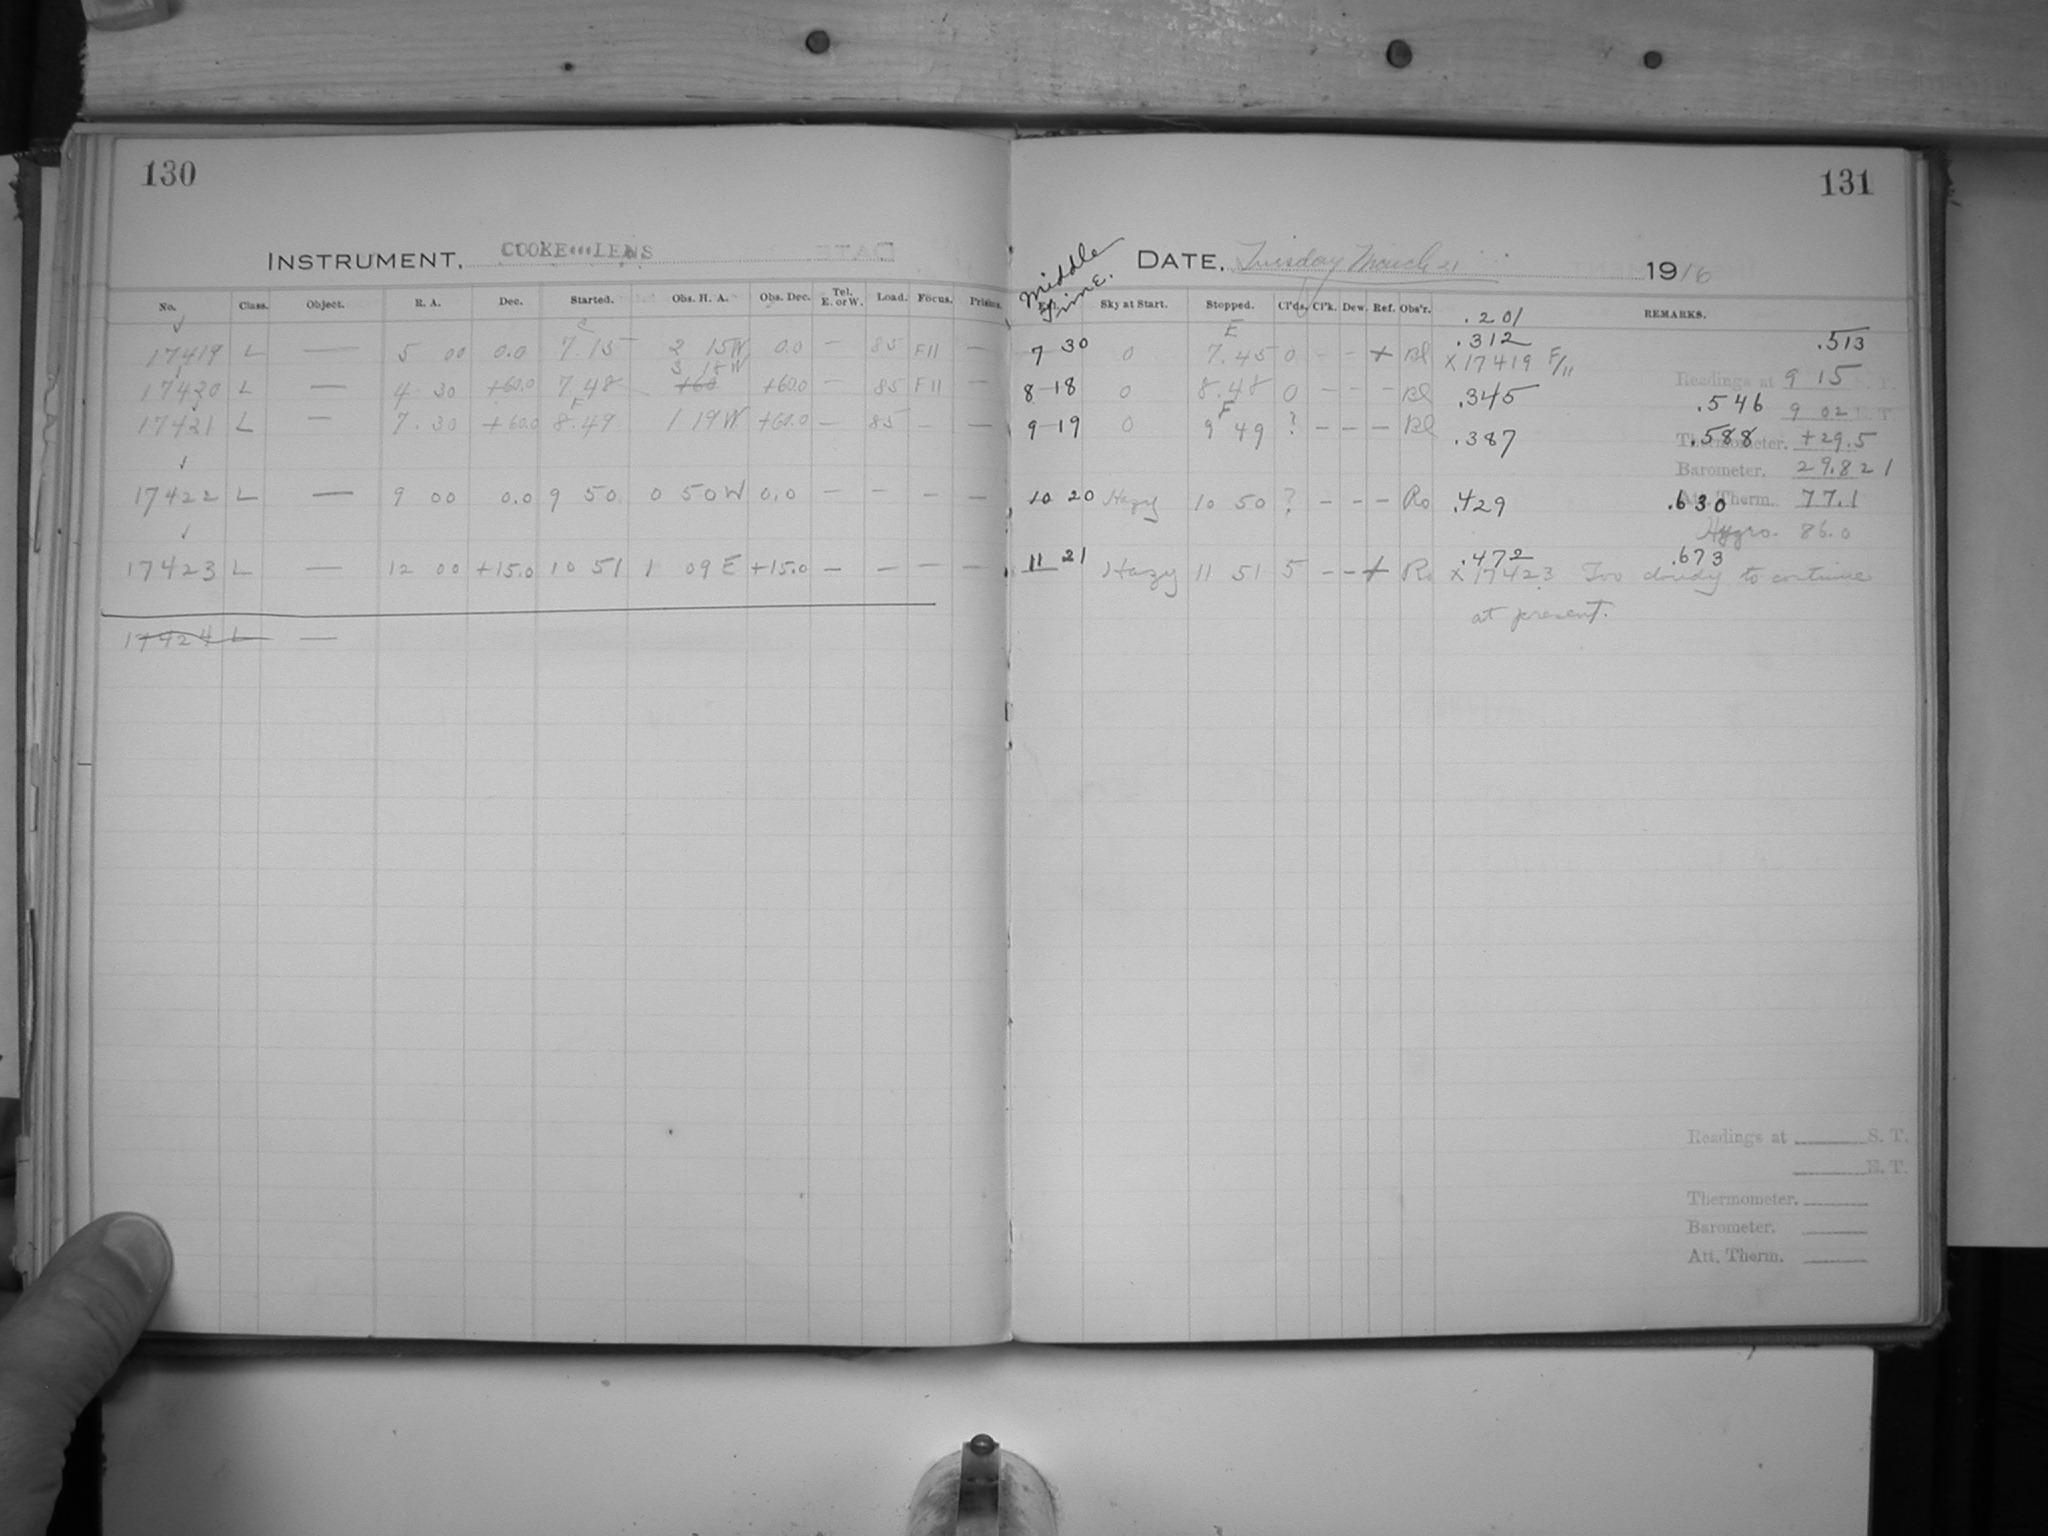 130
INSTRUMENT. COOKE LENS
No. Class. Object. R. A. Dec. Started. Obs. H. A. Obs. Dec. Tel. E. or W. Load. Focus. Prisms.
17419 L — 5 00 0.0 7.15 2 15W 0.0 — 85 F11 —
3 18W
17420 L — 4 30 +60.0 7.48 +60 +60.0 — 85 F11 —
17421 L — 7.30 +60.0 8.49 1 19W +60.0 — 85 — —
17422 L — 9 00 0.0 9 50 0 50W 0.0 — — — —
17423 L — 12 00 +15.0 10 51 1 09 E +15.0 — — — —
17424 L —
131
Middle Time.
DATE. Tuesday March 21 1916
Sky at Start. Stopped. Cl'ds. Cl'k. Dew. Ref. Obs'r. REMARKS.
.201
.312 .513
7 30 0 7.45 0 - - + Bl X 17419 F/11
Readings at 9 15 S. T.
8-18 0 8.48 0 - - - Bl .345 .546
9 02 E. T.
9-19 0 9 49 ? - - - Bl .387 .588
Thermometer. +29.5
Barometer. 29.821
10 20 Hazy 10 50 ? - - - Ro .429 .630
Att. Therm. 77.1
Hygro. 86.0
.472 .673
11 21 Hazy 11 51 5 - - + Ro X 17423 Too cloudy to continue
at present.
Readings at S. T.
E. T.
Thermometer.
Barometer.
Att. Therm.